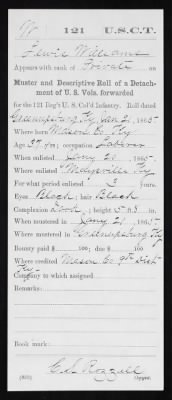 W | 121 | U.S.C.T.
Lewis Williams
Appears with rank of Private on
Muster and Descriptive Roll of a Detach-
ment of U. S. Vols. forwarded
for the 121 Reg't U. S. Col'd Infantry. Roll dated
Greenupsburg Ky Jan 21, 1865.
Where born Mason Co. Ky
Age 37 y'rs; occupation Laborer
When enlisted Jany 20, 1865.
Where enlisted Maysville Ky
For what period enlisted 3 years.
Eyes Black; hair Black
Complexion; height 5 ft. 3 in.
When mustered in Jany 21, 1865.
Where mustered in Greenupsburg Ky
Bounty paid $ 100; due $ 100
Where credited Mason Co. 9th Dist
Ky
Company to which assigned
Remarks:
Book mark:
Copyist.